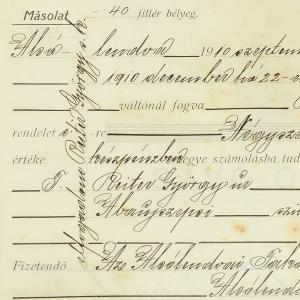 Másolat -·40 fillér bélyeg.
Alsó-lendva 1910 szeptem
1910 december hó 22-
váltónál fogva
rendelet é -re Négysz
értéke készpénzben vegye számolásba tud
T. Reiter György ur
Abaujszepsi szü
Fizetendő Az Alsólendvai Taka
Alsólend
Elfogadom Reiter György s. k.